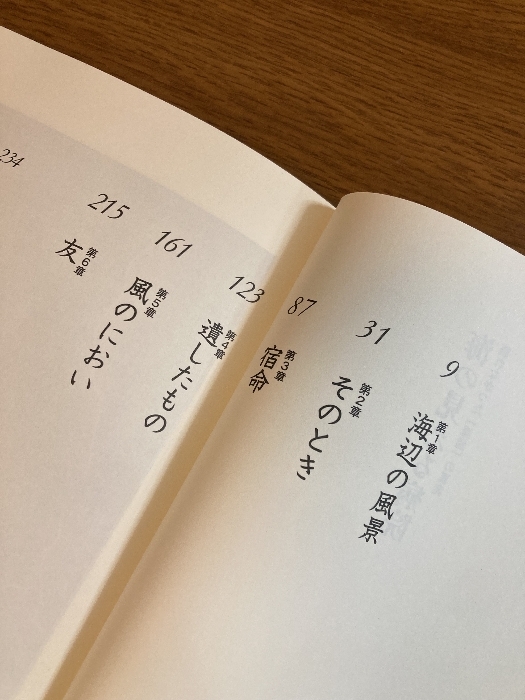 9
第1章
海辺の風景
31
第2章
そのとき
87
第3章
宿命
123
第4章
遺したもの
161
第5章
風のにおい
215
第6章
友
234